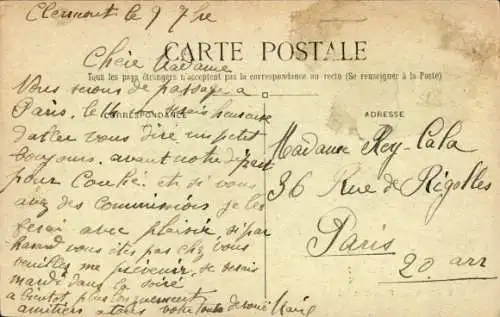 Clermont le 9 7bre
Chère Madame
CARTE POSTALE
Tout les pays étrangers n'acceptent pas la correspondance au recto (Se renseigner à la Poste)
Vous serons de passage a
Paris, le serais heureuse
CORRESPONDANCE
ADRESSE
d'aller vous dire un petit
bonjours. avant notre départ
pour Couhé. et si vous
avez des Commissions je les
ferai avec plaisir, si par
hasard vous êtes pas chez vous
veuillez me prévenir, je serais
dans la soiré
a bientot plus longuement
amitiers a tous votre toute dévoué
Madame Rey-Lala
36 Rue de Rigolles
Paris
20. arr